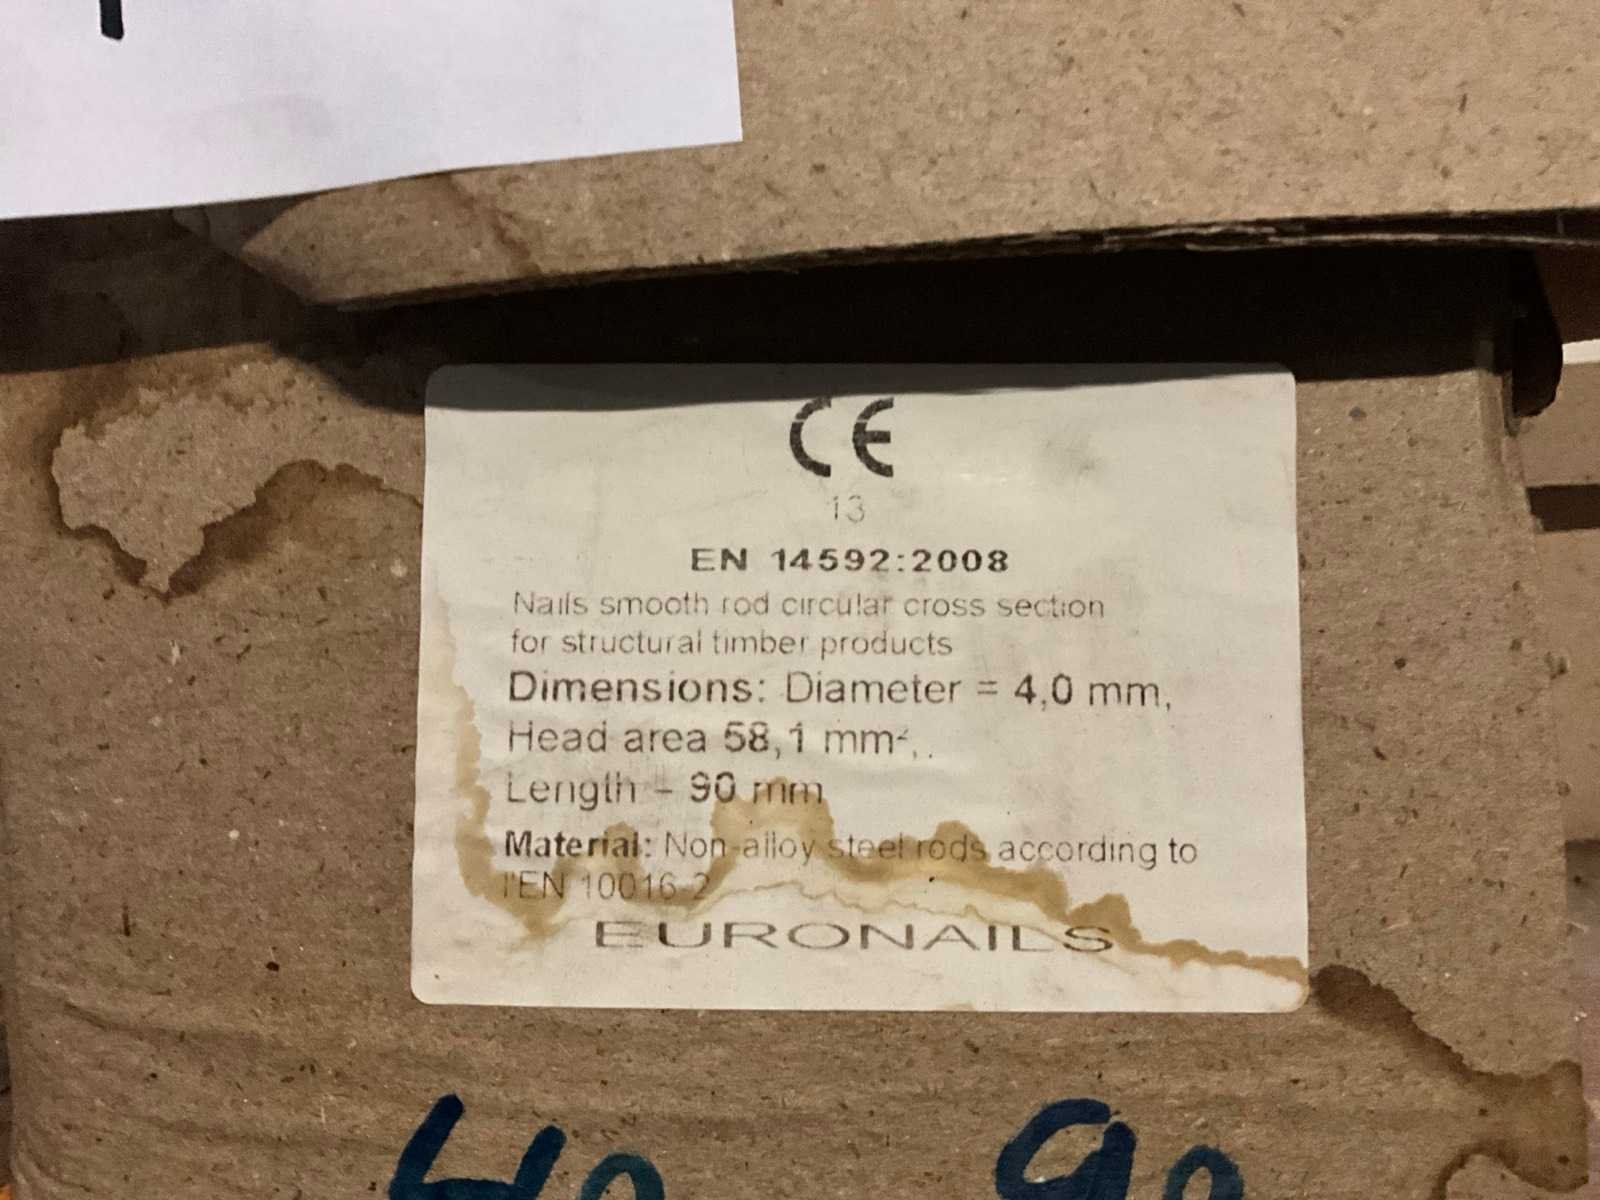 CE
13
EN 14592:2008
Nails smooth rod circular cross section
for structural timber products
Dimensions: Diameter = 4,0 mm,
Head area 58,1 mm²,.
Length = 90 mm
Material: Non-alloy steel rods according to
l'EN 10016-2
EURONAILS
40 90